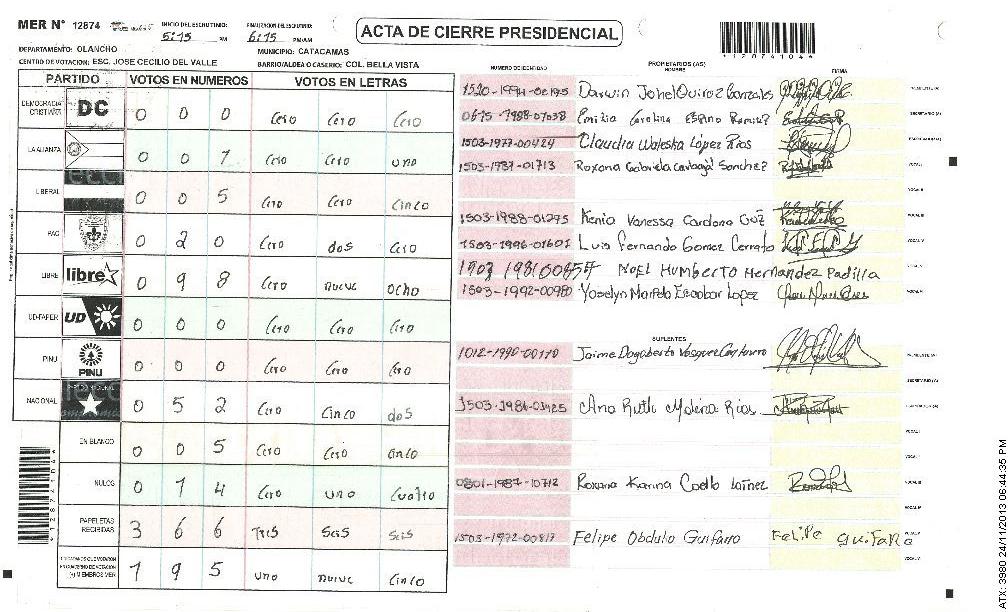 MER N° 12874
INICIO DEL ESCRUTINIO: 5:15 PM
FINALIZACION DEL ESCRUTINIO: 6:15 PM/AM
ACTA DE CIERRE PRESIDENCIAL
DEPARTAMENTO: OLANCHO
MUNICIPIO: CATACAMAS
CENTRO DE VOTACION: ESC. JOSE CECILIO DEL VALLE
BARRIO/ALDEA O CASERIO: COL. BELLA VISTA
PARTIDO VOTOS EN NUMEROS VOTOS EN LETRAS
DEMOCRACIA CRISTIANA DC 0 0 0 Cero Cero Cero
LA ALIANZA 0 0 1 Cero Cero uno
LIBERAL 0 0 5 Cero Cero Cinco
PAC 0 2 0 Cero dos Cero
LIBRE libre 0 9 8 Cero nueve ocho
UD-FAPER UD 0 0 0 Cero Cero Cero
PINU PINU 0 0 0 Cero Cero Cero
NACIONAL 0 5 2 Cero Cinco dos
EN BLANCO 0 0 5 Cero Cero Cinco
NULOS 0 1 4 Cero uno Cuatro
PAPELETAS RECIBIDAS 3 6 6 Tres Seis Seis
1 9 5 uno nueve Cinco
NUMERO DE IDENTIDAD PROPIETARIOS (AS) NOMBRE FIRMA
Darwin Johel Quiroz Gonzales
Emilia Carolina
1503-1977-00424 Claudia Waleska López Rios
1503-1987-01713 Roxana Gabriela Carbajal Sanchez
1503-1988-01295 Kenia Vanessa Cardona
1503-1996-01601 Luis Fernando Gomez Cerrato
Noel Humberto Hernandez Padilla
1503-1992-00980 Yoselyn Escobar Lopez
SUPLENTES
1012-1990-00110 Jaime Dagoberto Vasquez
Ana Ruth Molina Rios
0801-1987-10712 Roxana Karina Coello
1503-1972-00817 Felipe Obdulo Guifarro Felipe guifarro
ATX: 3980 24/11/2013 06:44:35 PM